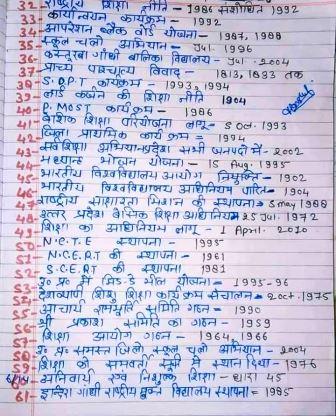 32- राष्ट्रीय शिक्षा नीति - 1986 संशोधित 1992
33- कार्यान्वयन कार्यक्रम - 1992
34- आपरेशन ब्लैक बोर्ड योजना - 1987, 1988
35- स्कूल चलो अभियान - Jul. 1996
36- कस्तूरबा गांधी बालिका विद्यालय - Jul. 2004
37- प्राच्य पाश्चात्य विवाद - 1813, 1893 तक
38- S.O.P.T कार्यक्रम - 1993, 1994
39- लार्ड कर्जन की शिक्षा नीति 1904
40- P.MOST कार्यक्रम - 1986
41- बेसिक शिक्षा परियोजना लागू - 5 Oct. 1993
42- जिला प्राथमिक कार्यक्रम - 1994
43- सर्व शिक्षा अभियान प्रदेश सभी जनपदों में - 2002
44- मध्यान्ह भोजन योजना - 15 Aug. 1995
45- भारतीय विश्वविद्यालय आयोग नियुक्ति - 1902
46- भारतीय विश्वविद्यालय अधिनियम पारित - 1904
47- राष्ट्रीय साक्षरता मिशन की स्थापना 5 may 1988
48- उत्तर प्रदेश बेसिक शिक्षा अधिनियम 25 Jul. 1972
49- शिक्षा का अधिनियम लागू - 1 April. 2010
50- N.C.T.E स्थापना - 1995
51- N.C.E.R.T की स्थापना - 1961
52- S.C.E.R.T की स्थापना 1981
53- उ० प्र० में मिड-डे मील योजना = 1995-96
54- देशव्यापी शिशु शिक्षा कार्यक्रम संचालन = 2 oct. 1975
55- आचार्य राममूर्ति समिति गठन = 1990
56- श्री प्रकाश समिति का गठन - 1959
57- शिक्षा आयोग गठन - 1964, 1966
58- उ० प्र० समस्त जिलो स्कूल चलो अभियान - 2004
59- शिक्षा को समवर्ती सूची में स्थान दिया - 1976
60- अनिवार्य एवं निशुल्क शिक्षा - धारा 45
61- इन्दिरा गांधी राष्ट्रीय मुक्त विद्यालय स्थापना = 1985